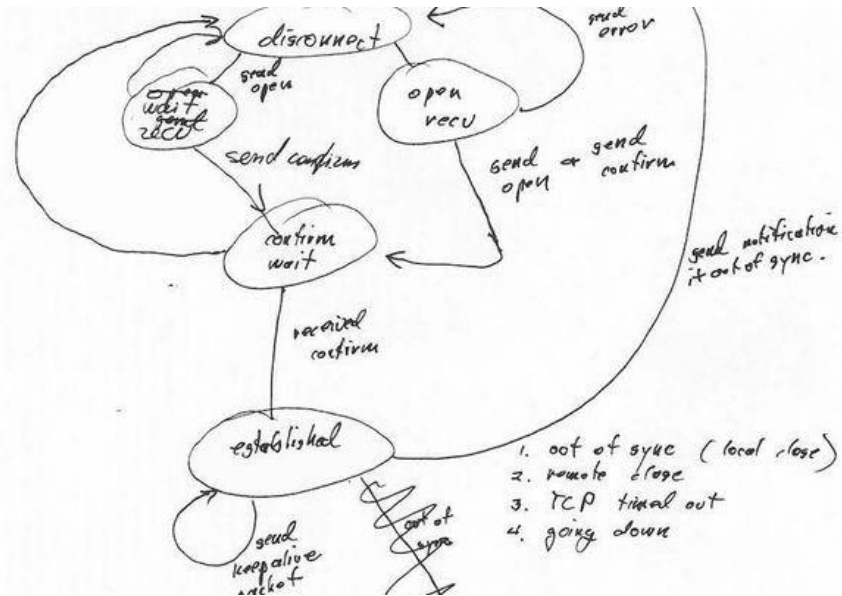 send
error
disconnect
send
open
open
wait
send
recv
open
recv
send confirm
send
open or send
confirm
confirm
wait
send notification
if out of sync.
received
confirm
established
1. out of sync (local close)
2. remote close
3. TCP timed out
4. going down
out of
sync
send
keepalive
packet